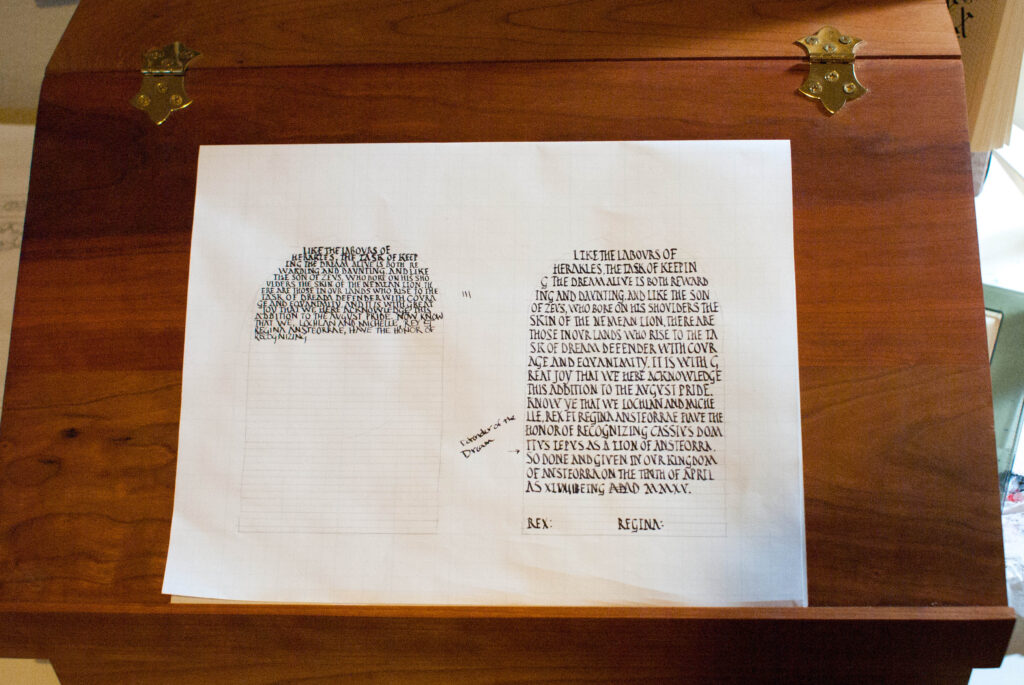 LIKE THE LABOVRS OF
HERAKLES, THE TASK OF KEEP
ING THE DREAM ALIVE IS BOTH RE
WARDING AND DAVNTING, AND LIKE
THE SON OF ZEVS, WHO BORE ON HIS SHO
VLDERS THE SKIN OF THE NEMEAN LION, TH
ERE ARE THOSE IN OVR LANDS WHO RISE TO THE
TASK OF DREAM DEFENDER WITH COVRA
GE AND EQVANIMITY. AND IT IS WITH GREAT
JOY THAT WE HERE ACKNOWLEDGE THIS
ADDITION TO THE AVGVST PRIDE. NOW KNOW
THAT WE, LOCHLAN AND MICHELLE, REX ET
REGINA ANSTEORRAE, HAVE THE HONOR OF
RECOGNIZING
LIKE THE LABOVRS OF
HERAKLES, THE TASK OF KEEPIN
G THE DREAM ALIVE IS BOTH REWARD
ING AND DAVNTING. AND LIKE THE SON
OF ZEVS, WHO BORE ON HIS SHOVLDERS THE
SKIN OF THE NEMEAN LION, THERE ARE
THOSE IN OVR LANDS WHO RISE TO THE TA
SK OF DREAM DEFENDER WITH COVR
AGE AND EQVANIMITY. IT IS WITH G
REAT JOY THAT WE HERE ACKNOWLEDGE
THIS ADDITION TO THE AVGVST PRIDE.
KNOW YE THAT WE LOCHLAN AND MICHE
LLE, REX ET REGINA ANSTEORRAE HAVE THE
HONOR OF RECOGNIZING CASSIVS DOM
ITVS LEPVS AS A LION OF ANSTEORRA.
SO DONE AND GIVEN IN OVR KINGDOM
OF ANSTEORRA ON THE TENTH OF APRIL
AS BEING MMXV.
REX: REGINA:
Defender of the
Dream